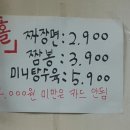 홀
짜장면: 2,900
짬뽕: 3,900
미니탕수육: 5,900
,000원 미만은 카드 안됨